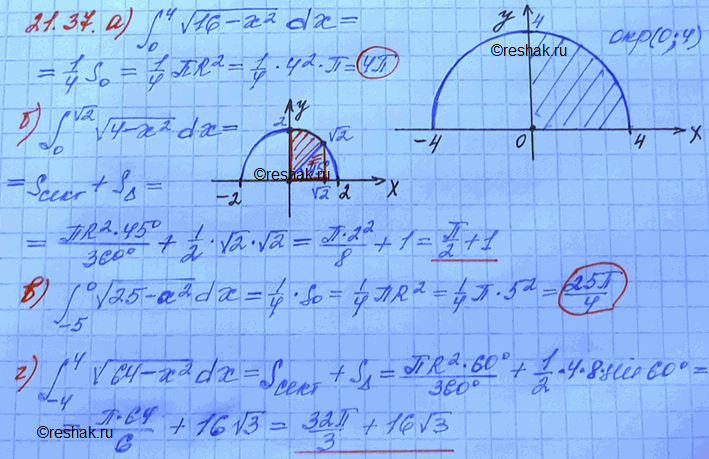 21.37. а) ∫₀⁴ √(16-x²) dx =
= 1/4 S₀ = 1/4 πR² = 1/4 · 4² · π = 4π
y
4
©reshak.ru
окр(0; 4)
-4 0 4 x
б) ∫₀^√2 √(4-x²) dx =
y
2
√2
©reshak.ru
-2 √2 2 x
= Sсект + S△ =
= πR²·45°/360° + 1/2 · √2 · √2 = π·2²/8 + 1 = π/2 + 1
в) ∫₋₅⁰ √(25-x²) dx = 1/4 · S₀ = 1/4 πR² = 1/4 π · 5² = 25π/4
г) ∫₋₄⁴ √(64-x²) dx = Sсект + S△ = πR²·60°/360° + 1/2 · 4 · 8 sin 60° =
= π·64/6 + 16√3 = 32π/3 + 16√3
©reshak.ru